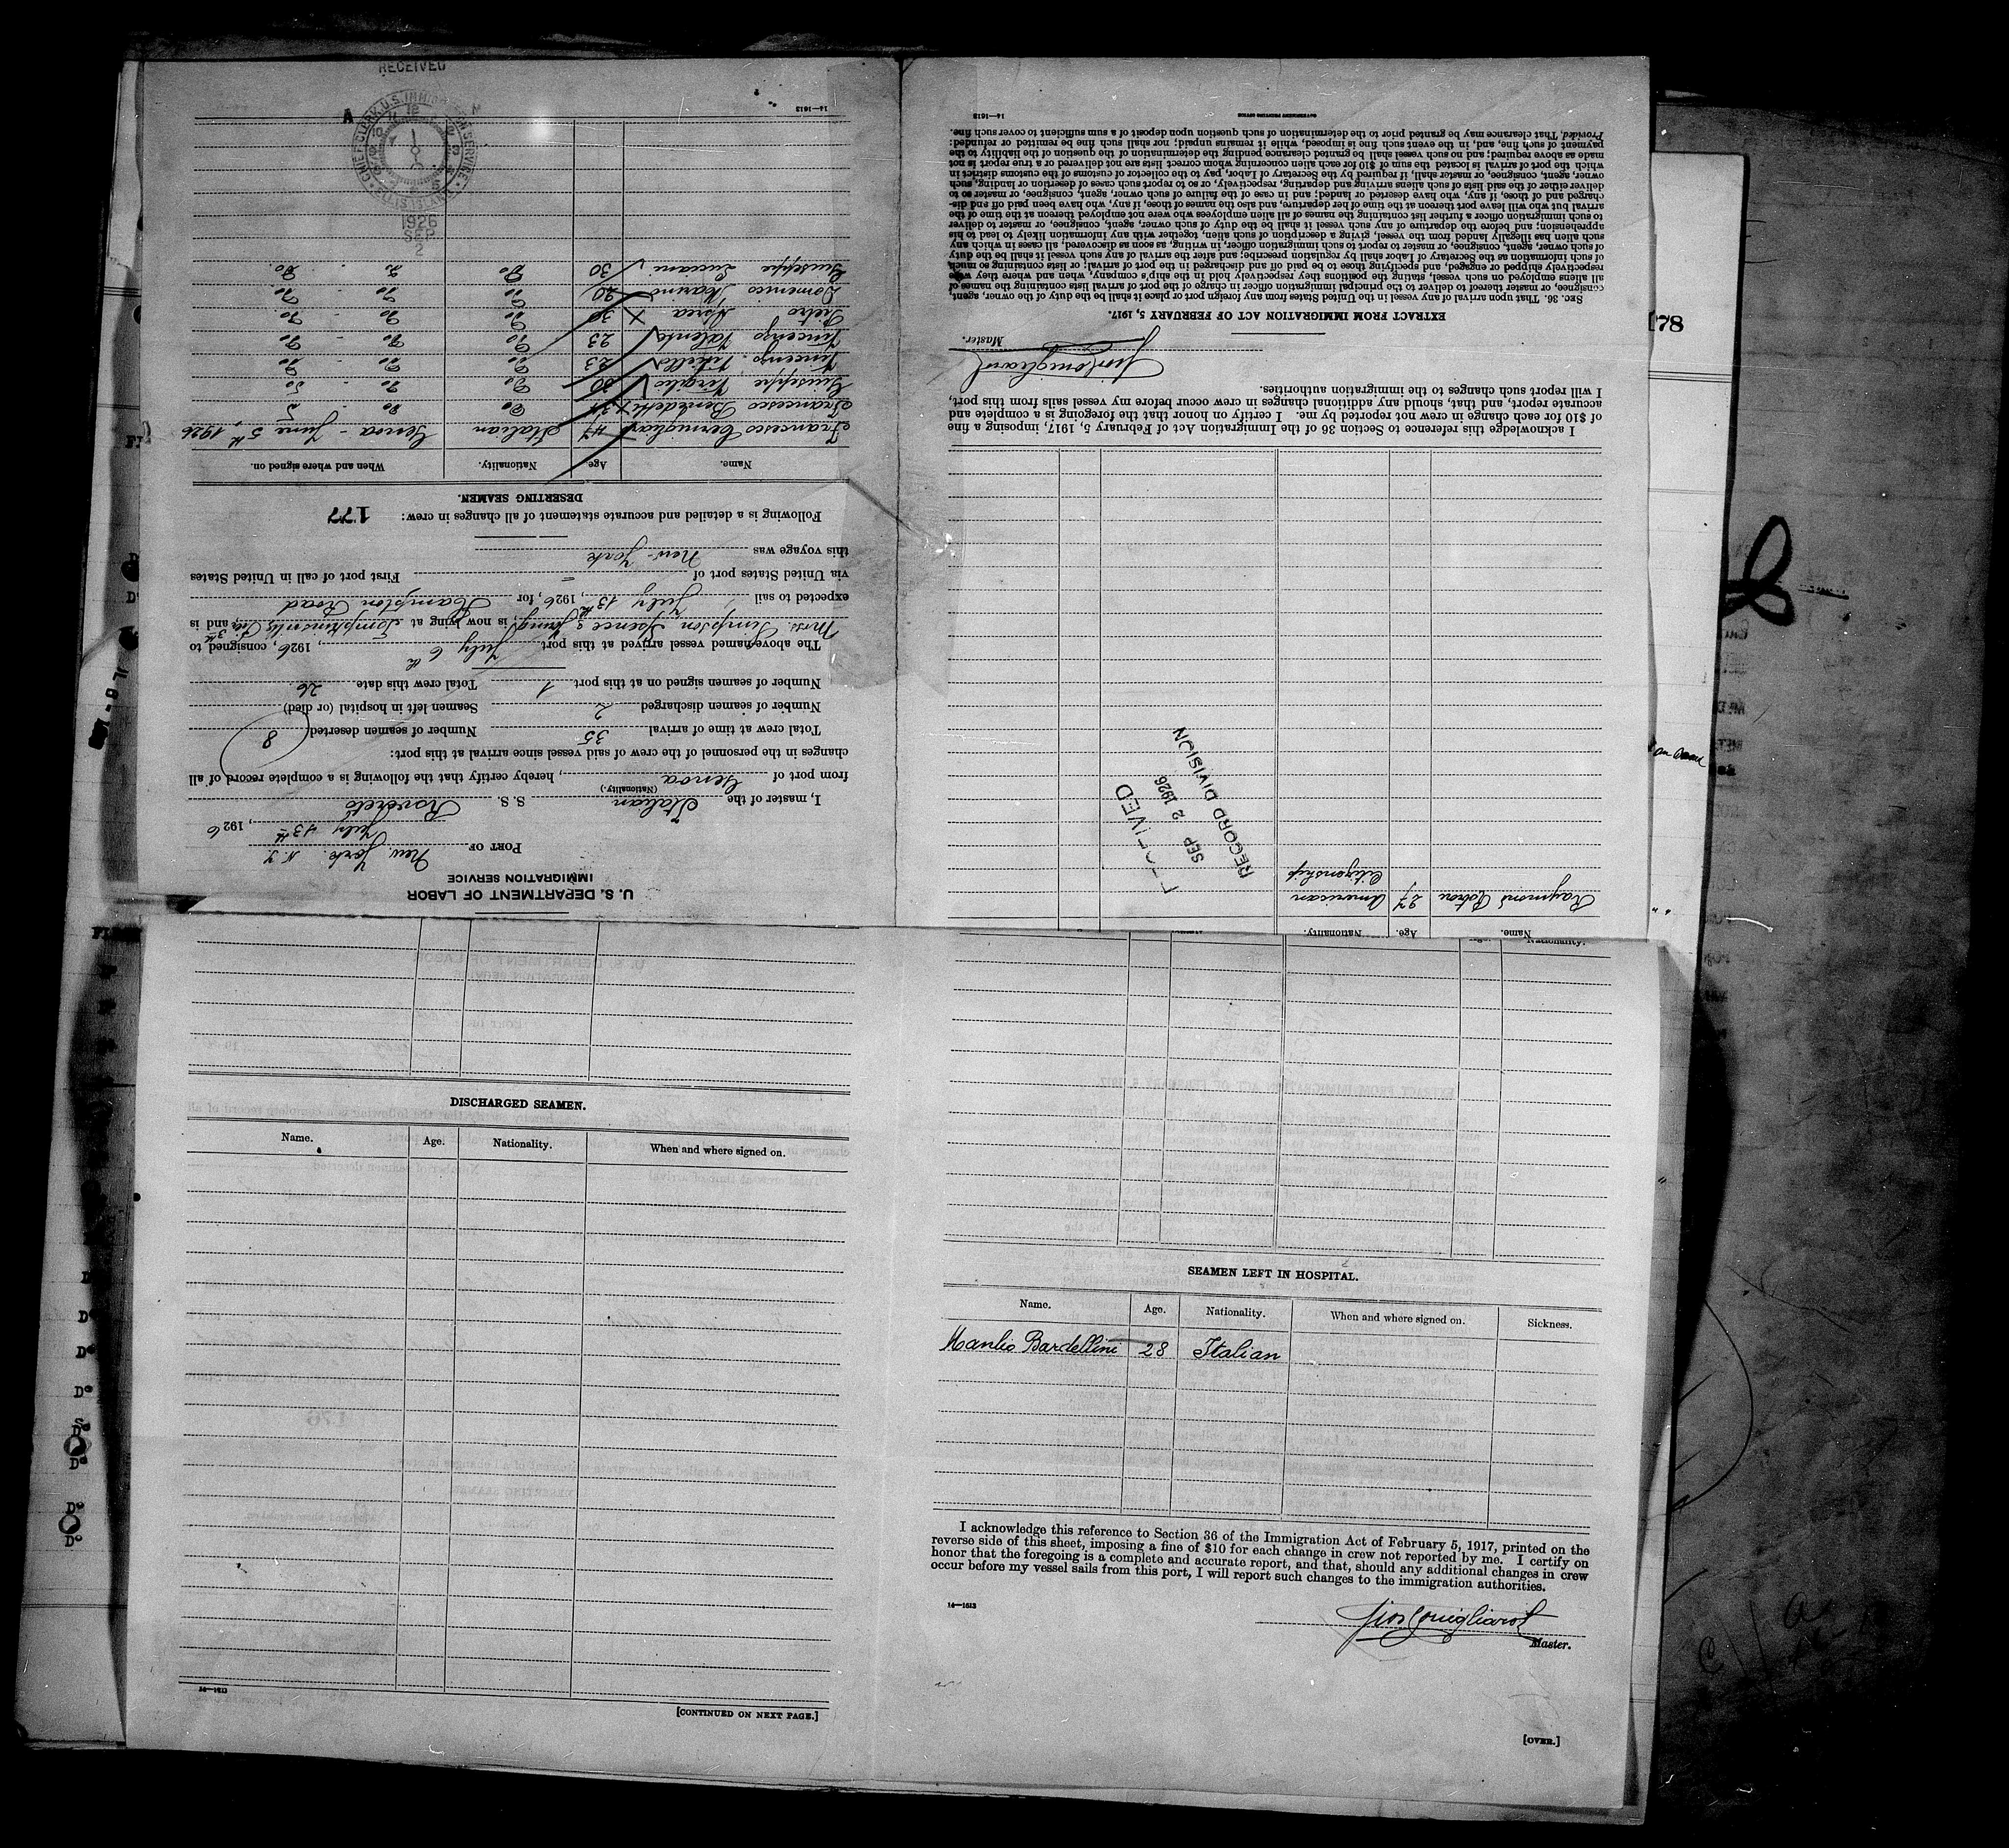 U. S. DEPARTMENT OF LABOR
IMMIGRATION SERVICE
PORT OF New York N. Y.
July 13th, 1926
I, master of the Italian S. S. Rovereto
(Nationality.)
from port of Genoa, hereby certify that the following is a complete record of all
changes in the personnel of the crew of said vessel since arrival at this port:
Total crew at time of arrival 35 Number of seamen deserted 8
Number of seamen discharged 2 Seamen left in hospital (or died)
Number of seamen signed on at this port 1 Total crew this date 26
The above-named vessel arrived at this port July 6th, 1926, consigned to
Mrss. Simpson Spence & Young; is now lying at Tompkinsville, and is
expected to sail July 13th, 1926, for Hampton Road
via United States port of First port of call in United States
this voyage was New York
Following is a detailed and accurate statement of all changes in crew: 177
DESERTING SEAMEN.
Name. Age Nationality. When and where signed on.
Francesco 47 Italian Genoa - June 5th, 1926
Francesco Benedetti Do Do 5
Giuseppe Virgilio 30 Do Do Do
Vincenzo Vitiello 23 Do Do Do
Vincenzo Valenta 23 Do Do - Do
Pietro 30 Do Do - Do
Domenico Marino 20 Do Do - Do
Giuseppe Luciani 30 Do Do Do
CHIEF CLERK, U.S. IMMIGRATION SERVICE
ELLIS ISLAND
1926
SEP
2
A
RECEIVED
14—1613
Name. Age. Nationality.
Raymond 27 American
Citizenship
RECEIVED
SEP 2 1926
RECORD DIVISION
I acknowledge this reference to Section 36 of the Immigration Act of February 5, 1917, imposing a fine
of $10 for each change in crew not reported by me. I certify on honor that the foregoing is a complete and
accurate report, and that, should any additional changes in crew occur before my vessel sails from this port,
I will report such changes to the immigration authorities.
Master.
EXTRACT FROM IMMIGRATION ACT OF FEBRUARY 5, 1917.
SEC. 36. That upon arrival of any vessel in the United States from any foreign port or place it shall be the duty of the owner, agent,
consignee, or master thereof to deliver to the principal immigration officer in charge of the port of arrival lists containing the names of
all aliens employed on such vessel, stating the positions they respectively hold in the ship's company, when and where they were
respectively shipped or engaged, and specifying those to be paid off and discharged in the port of arrival; or lists containing so much
of such information as the Secretary of Labor shall by regulation prescribe; and after the arrival of any such vessel it shall be the duty
of such owner, agent, consignee, or master to report to such immigration officer, in writing, as soon as discovered, all cases in which any
such alien has illegally landed from the vessel, giving a description of such alien, together with any information likely to lead to his
apprehension; and before the departure of any such vessel it shall be the duty of such owner, agent, consignee, or master to deliver
to such immigration officer a further list containing the names of all alien employees who were not employed thereon at the time of the
arrival but who will leave port thereon at the time of her departure, and also the names of those, if any, who have been paid off and dis-
charged and of those, if any, who have deserted or landed; and in case of the failure of such owner, agent, consignee, or master so to
deliver either of the said lists of such aliens arriving and departing, respectively, or so to report such cases of desertion or landing, such
owner, agent, consignee, or master shall, if required by the Secretary of Labor, pay to the collector of customs of the customs district in
which the port of arrival is located the sum of $10 for each alien concerning whom correct lists are not delivered or a true report is not
made as above required; and no such vessel shall be granted clearance pending the determination of the question of the liability to the
payment of such fine, and, in the event such fine is imposed, while it remains unpaid; nor shall such fine be remitted or refunded:
Provided, That clearance may be granted prior to the determination of such question upon deposit of a sum sufficient to cover such fine.
GOVERNMENT PRINTING OFFICE 14—1613
178
DISCHARGED SEAMEN.
Name. Age. Nationality. When and where signed on.
14—1613
[CONTINUED ON NEXT PAGE.]
SEAMEN LEFT IN HOSPITAL.
Name. Age. Nationality. When and where signed on. Sickness.
Manlio Bardellini 28 Italian
I acknowledge this reference to Section 36 of the Immigration Act of February 5, 1917, printed on the
reverse side of this sheet, imposing a fine of $10 for each change in crew not reported by me. I certify on
honor that the foregoing is a complete and accurate report, and that, should any additional changes in crew
occur before my vessel sails from this port, I will report such changes to the immigration authorities.
14—1613
Master.
[OVER.]